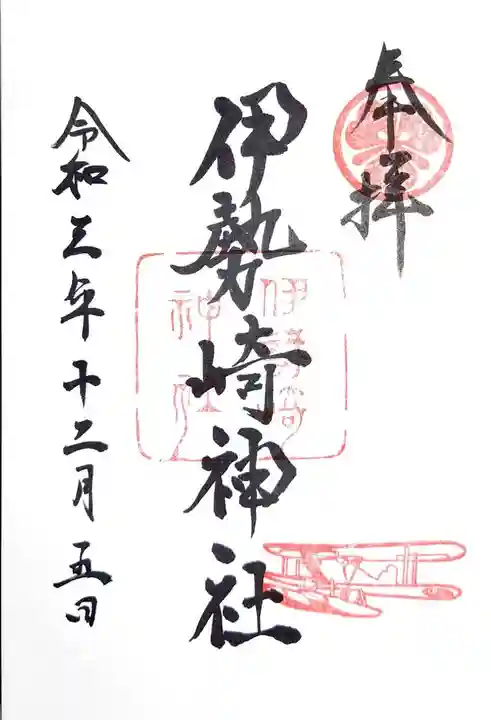 奉拝
伊勢崎神社
伊勢崎
神社
令和三年十二月五日